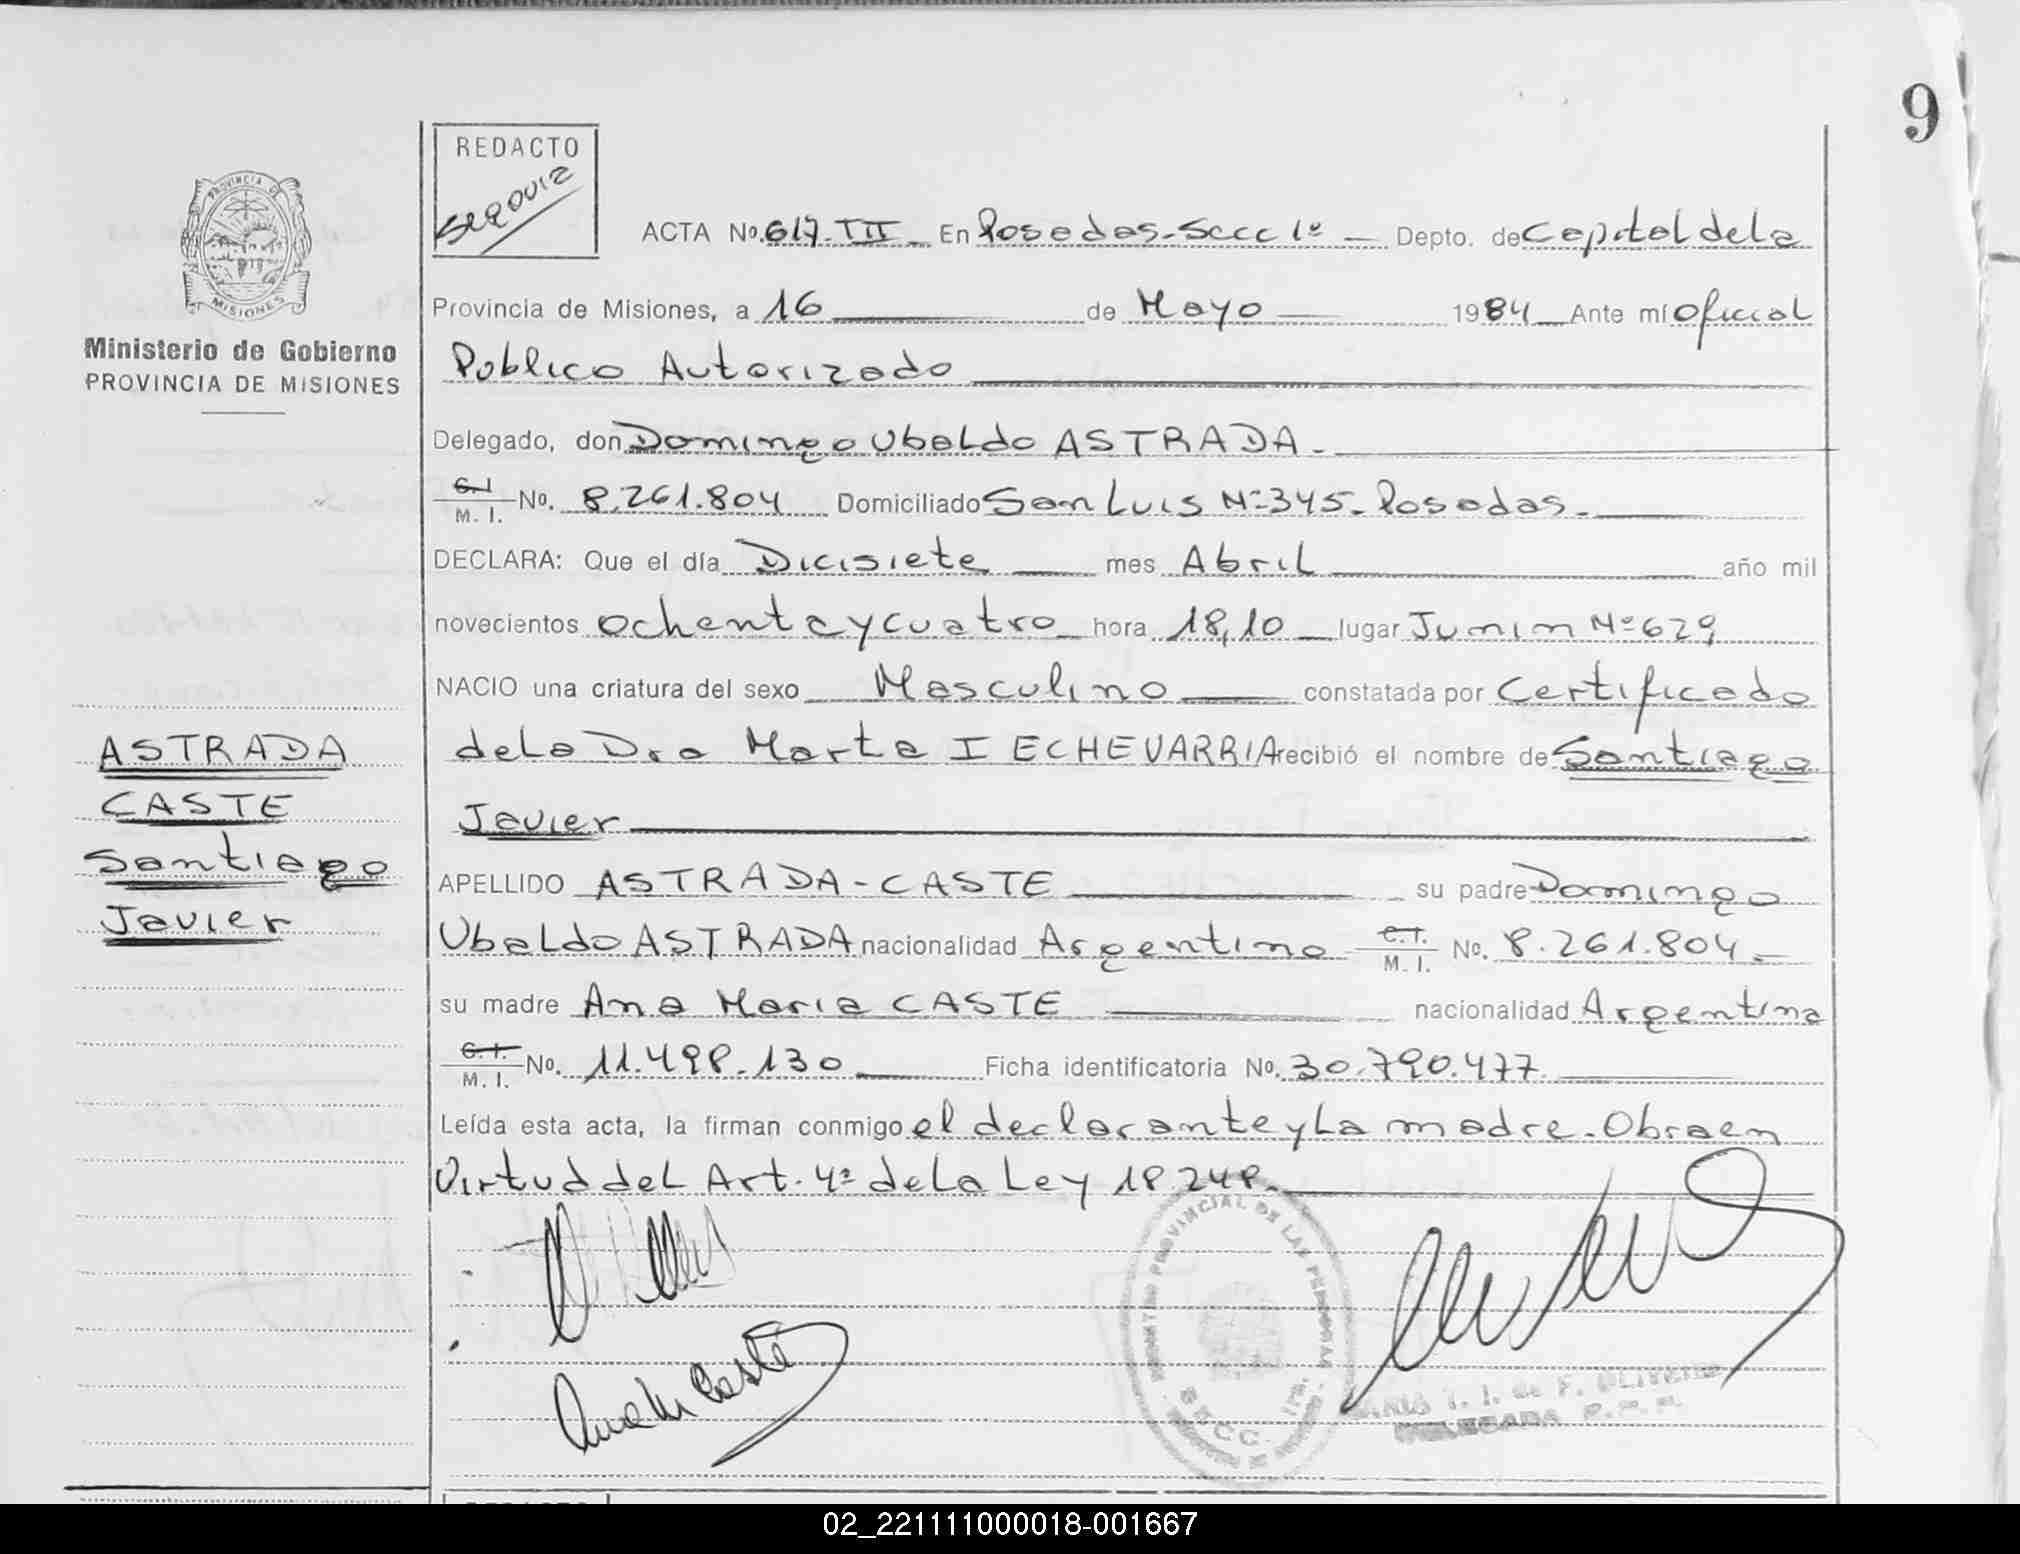 9
PROVINCIA DE
MISIONES
Ministerio de Gobierno
PROVINCIA DE MISIONES
REDACTO
ACTA No. 617. III En Posadas-Secc 1º Depto. de Capital de la
Provincia de Misiones, a 16 de Mayo 1984 Ante mí Oficial
Publico Autorizado
Delegado, don Domingo Ubaldo ASTRADA.
C.I. M. I. No. 8.261.804 Domiciliado San Luis Nº 345. Posadas.
DECLARA: Que el día Dicisiete mes Abril año mil
novecientos ochenta y cuatro hora 18,10 lugar Junin Nº 629
NACIO una criatura del sexo Masculino constatada por Certificado
de la Dra Marta I ECHEVARRIA recibió el nombre de Santiago
Javier
ASTRADA
CASTE
Santiago
Javier
APELLIDO ASTRADA-CASTE su padre Domingo
Ubaldo ASTRADA nacionalidad Argentino C.I. M. I. No. 8.261.804
su madre Ana Maria CASTE nacionalidad Argentina
C.I. M. I. No. 11.498.130 Ficha identificatoria No. 30.790.477.
Leída esta acta, la firman conmigo el declarante y La madre. Obra en
Virtud del Art. 4º de La Ley 18.248.
Ana M Caste
PROVINCIAL DE LAS PERSONAS
DELEGADA
02_221111000018-001667